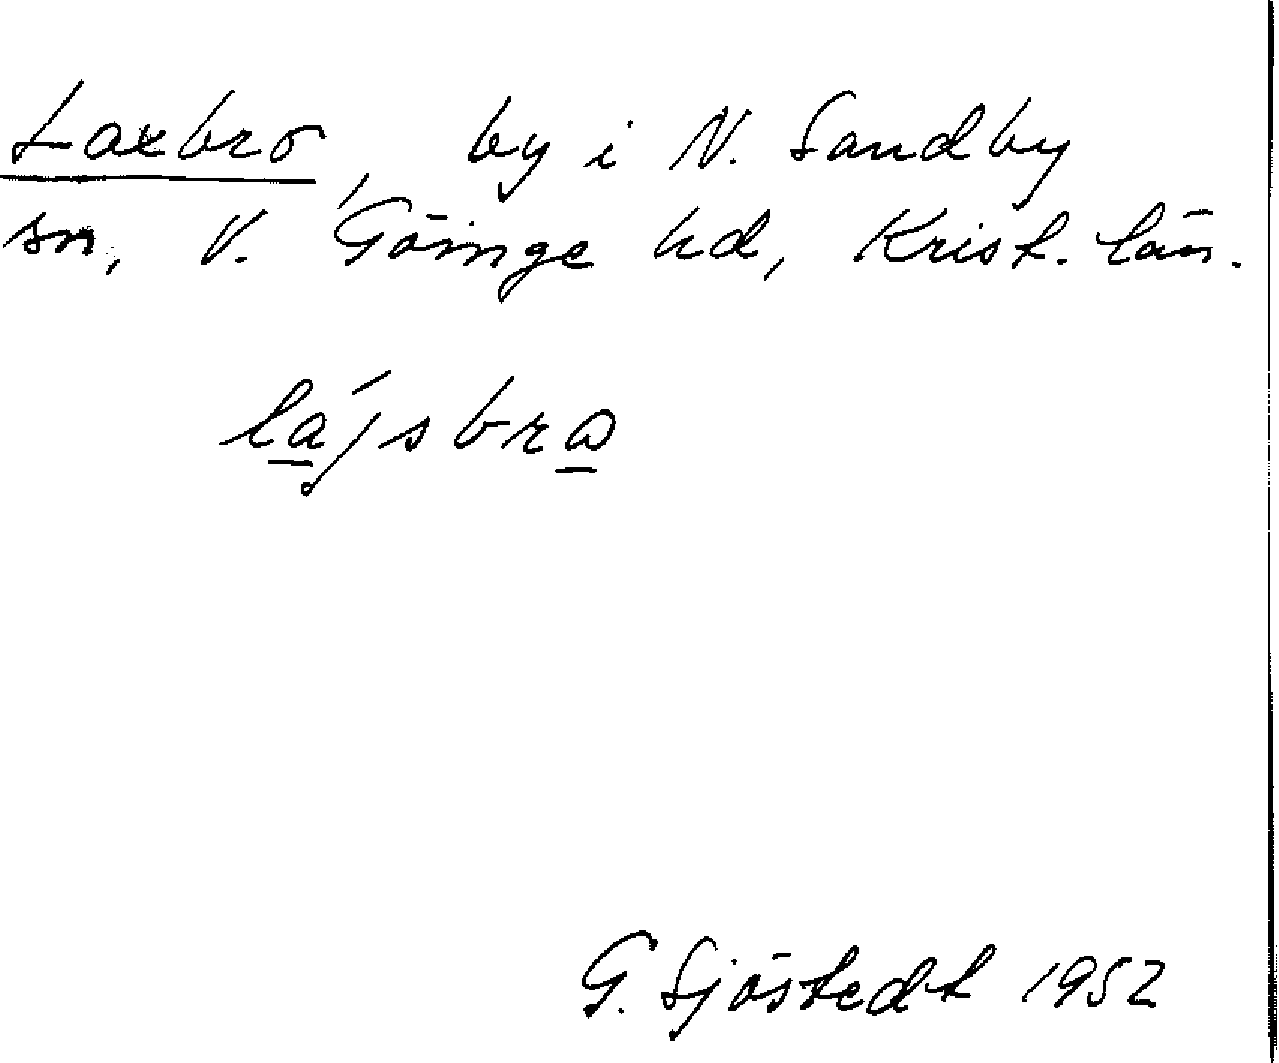 Laxbro, by i N. Sandby
sn, V. Göinge hd, Krist. län.
lájsbrɷ
G. Sjöstedt 1952